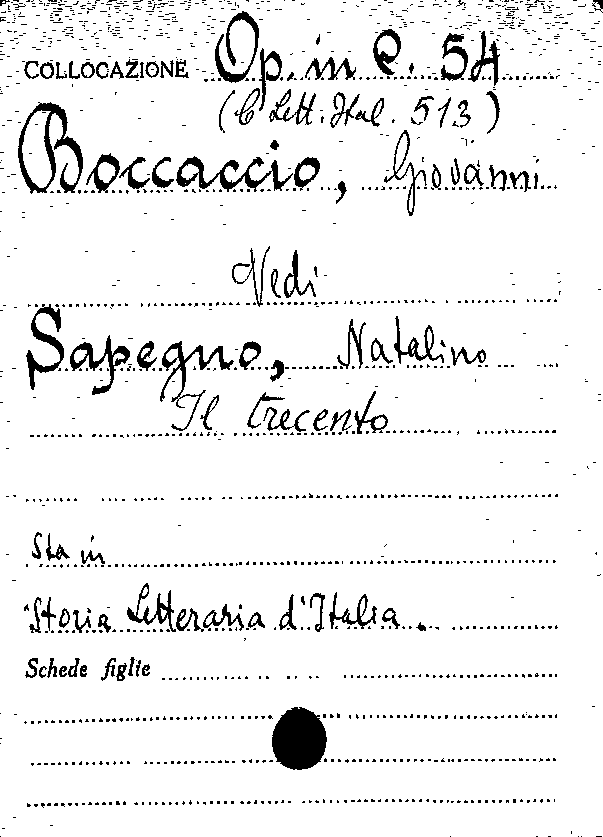 COLLOCAZIONE Op. in C. 54
(C Lett. Ital. 513)
Boccaccio, Giovanni
Vedi
Sapegno, Natalino
Il trecento
Sta in
Storia Letteraria d'Italia.
Schede figlie